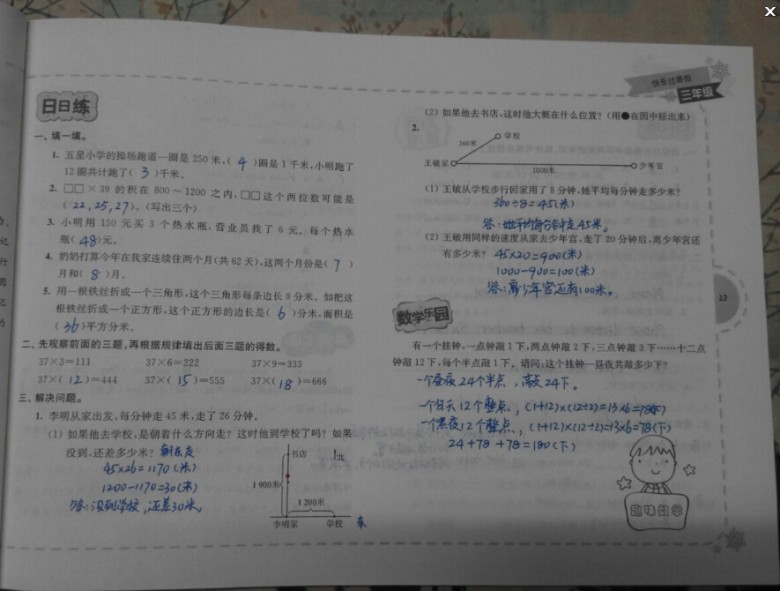 日日练
一、填一填。
1. 五星小学的操场跑道一圈是 250 米,( 4 )圈是 1 千米,小明跑了
12 圈共计跑了( 3 )千米。
2. □□×39 的积在 800～1200 之内,□□这个两位数可能是
( 22,25,27 )。(写出三个)
3. 小明用 150 元买 3 个热水瓶,营业员找了 6 元。每个热水
瓶( 48 )元。
4. 奶奶打算今年在我家连续住两个月(共 62 天),这两个月份是( 7 )
月和( 8 )月。
5. 用一根铁丝折成一个三角形,这个三角形每条边长 8 分米。如把这
根铁丝折成一个正方形,这个正方形的边长是( 6 )分米,面积是
( 36 )平方分米。
二、先观察前面的三题,再根据规律填出后面三题的得数。
37×3=111 37×6=222 37×9=333
37×( 12 )=444 37×( 15 )=555 37×( 18 )=666
三、解决问题。
1. 李明从家出发,每分钟走 45 米,走了 26 分钟。
(1) 如果他去学校,是朝着什么方向走? 这时他到学校了吗? 如果
没到,还差多少米? 朝东走
45×26=1170(米)
1200-1170=30(米)
答:没到学校,还差30米。
书店
北
1 900米
1 200米
李明家 学校 东
快乐过暑假
三年级
(2) 如果他去书店,这时他大概在什么位置? (用●在图中标出来)
2.
学校
360米
王敏家 少年宫
1000米
(1) 王敏从学校步行回家用了 8 分钟,她平均每分钟走多少米?
360÷8=45(米)
答:她平均每分钟走45米。
(2) 王敏用同样的速度从家去少年宫,走了 20 分钟后,离少年宫还
有多少米? 45×20=900(米)
1000-900=100(米)
答:离少年宫还有100米。
23
数学乐园
有一个挂钟,一点钟敲 1 下,两点钟敲 2 下,三点钟敲 3 下……十二点
钟敲 12 下,每个半点敲 1 下。请问:这个挂钟一昼夜共敲多少下?
一个昼夜24个半点,敲24下。
一个白天12个整点,(1+12)×(12÷2)=13×6=78(下)
一个黑夜12个整点,(1+12)×(12÷2)=13×6=78(下)
24+78+78=180(下)
趣味数学